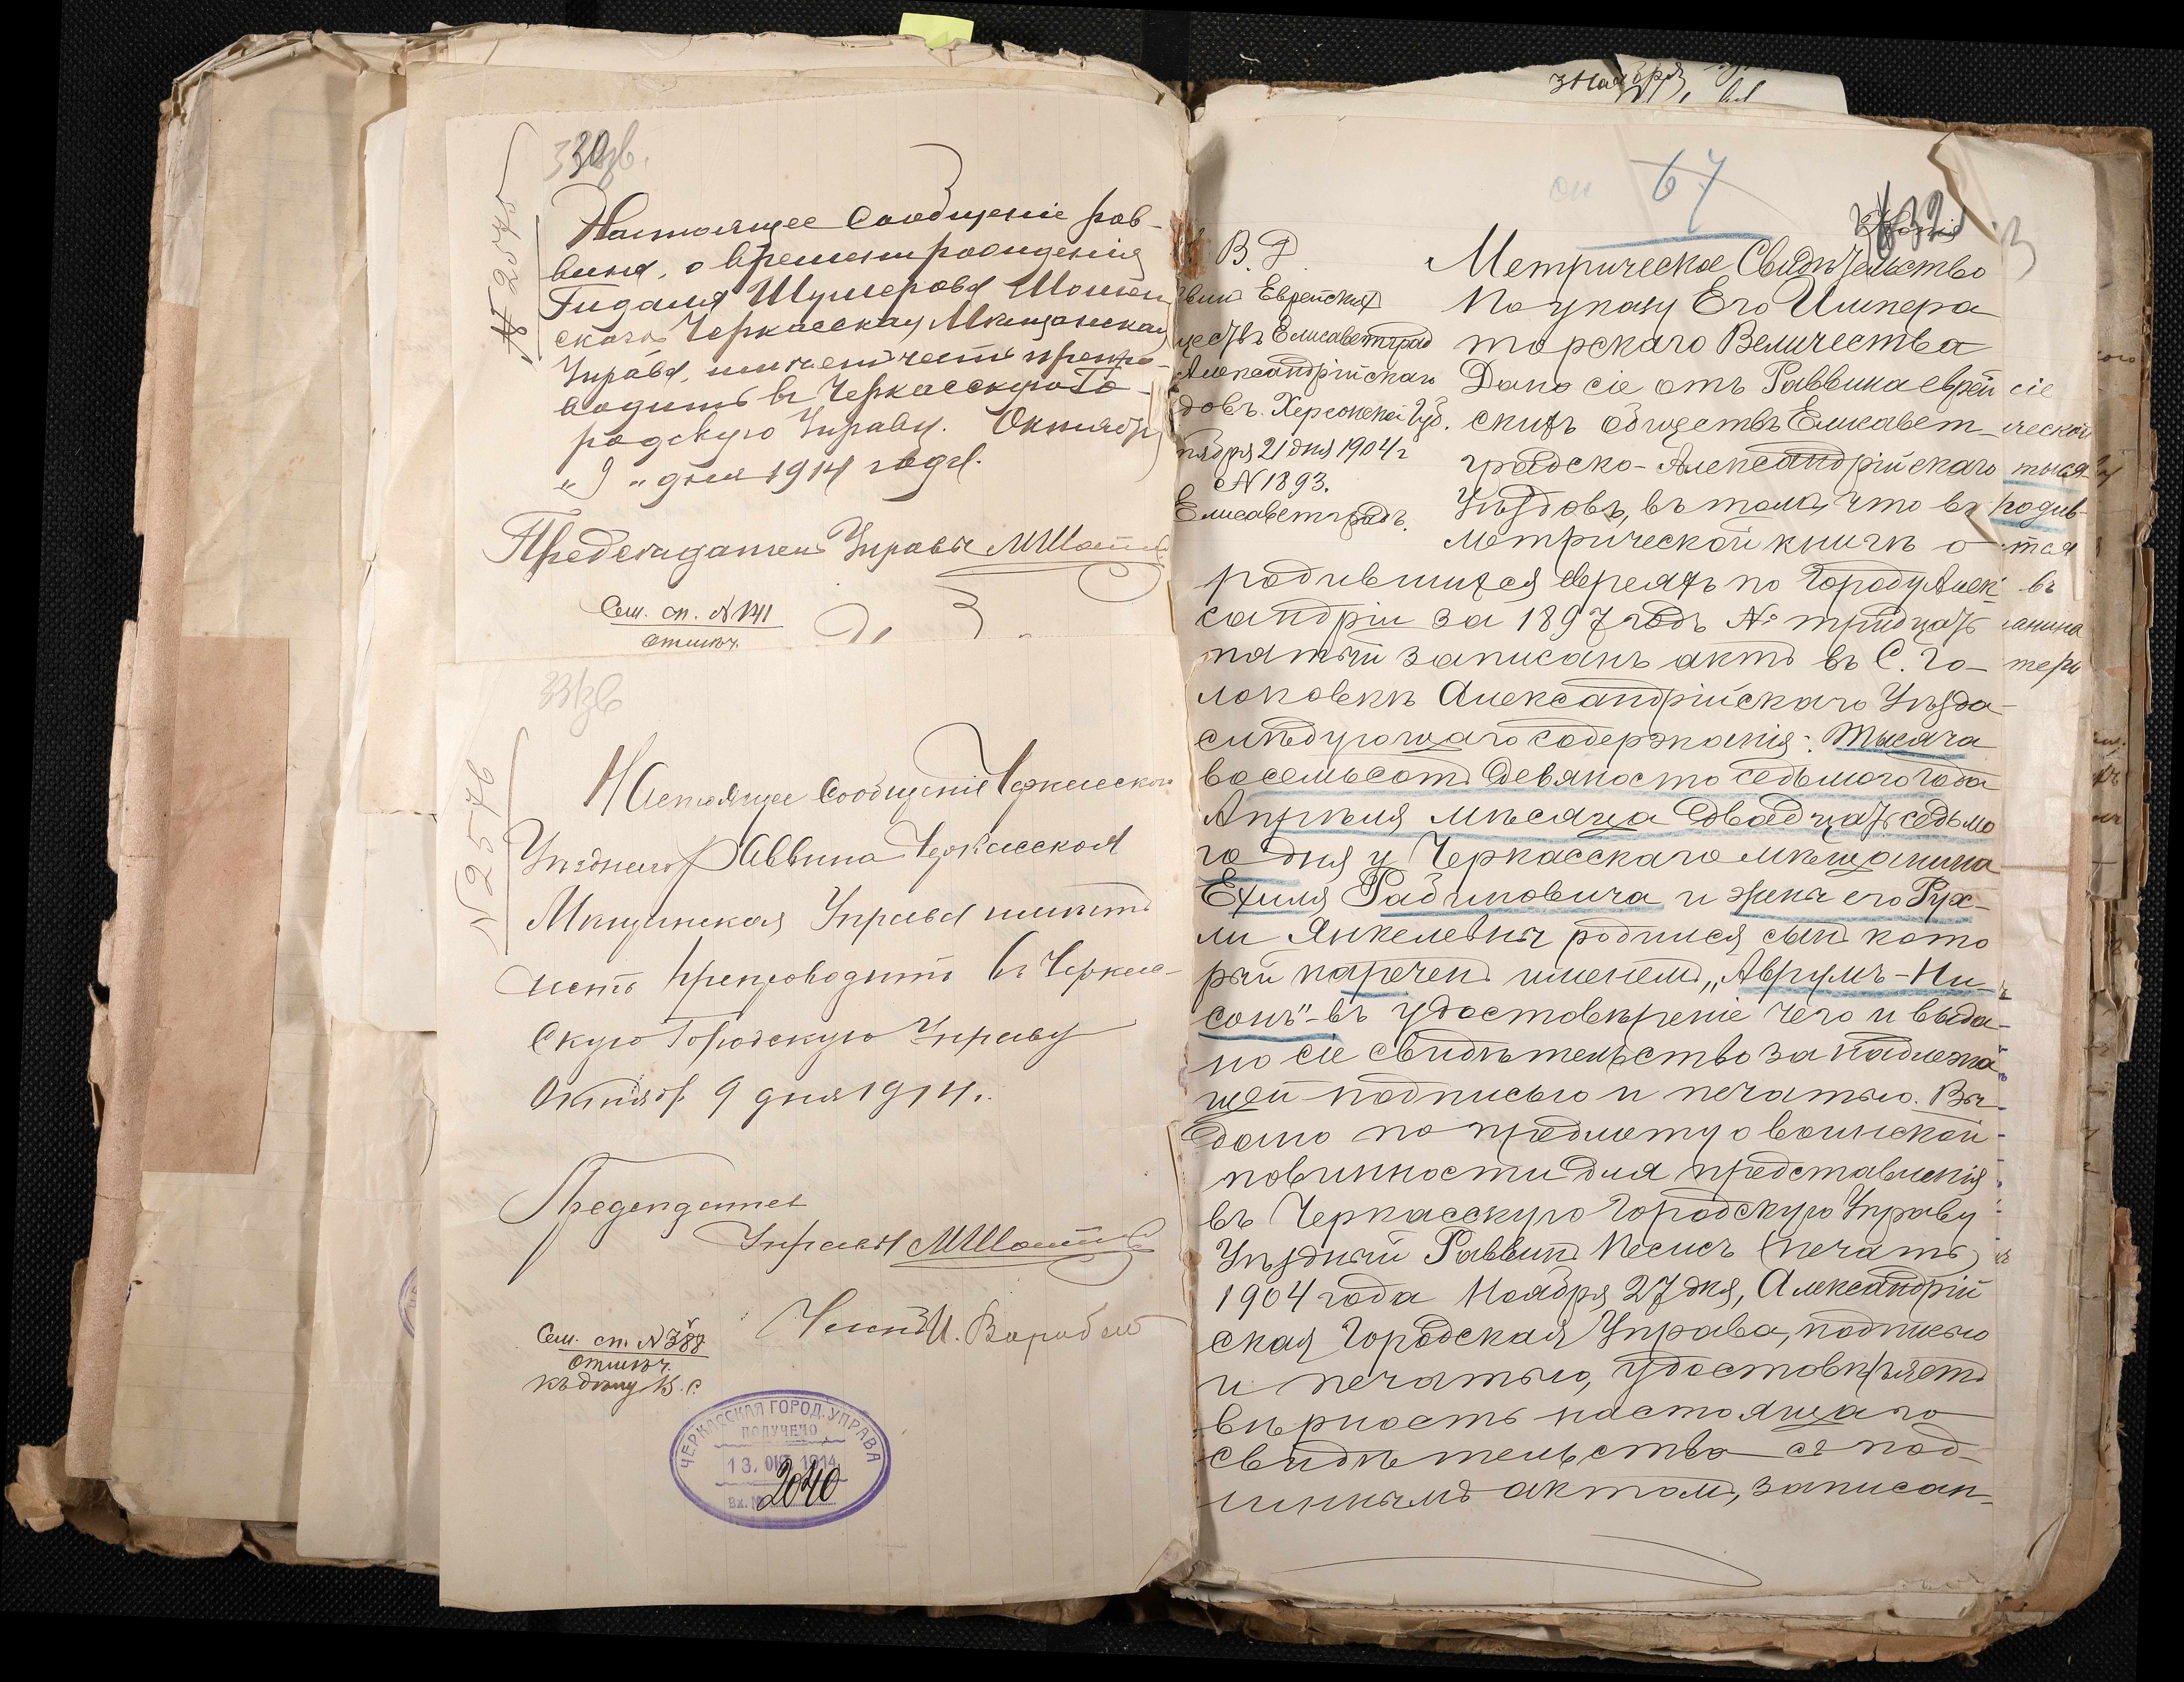 № 2575
Настоящее Сообщеніе рав-
вина, о времени рожденія
Гидалія Шулерова
скаго Черкасская Мѣщанская
Управа, имѣетъ честь препро-
водить въ Черкасскую Го-
родскую Управу. Октября
"9" дня 1914 года.
Председатель Управы
Сем. сп. № 141
отмѣч.
№ 2576
Настоящее Сообщеніе Черкасскаго
Уѣзднаго Раввина Черкасская
Мѣщанская Управа имѣетъ
честь препроводить въ Черкас-
скую Городскую Управу
Октября 9 дня 1914 г.
Председатель
Управы
Членъ И. Воробьев
Сем. сп. № 388
отмѣч.
къ дѣлу В. С.
ЧЕРКАССКАЯ ГОРОД. УПРАВА
ПОЛУЧЕНО
13. ОКТ. 1914
Вх. № 2040
67
Копія
В. Д.
Еврейскихъ
Елисаветград
Александрійскаго
Херсонской Губ.
21 дня 1904 г
№ 1893.
Елисаветградъ.
Метрическое Свидѣтельство
По указу Его Импера
торскаго Величества
Дано сіе отъ Раввина еврей
скихъ обществъ Елисавет-
градско-Александрійскаго
Уѣздовъ, въ томъ, что въ
метрической книгѣ о
родившихся евреяхъ по Городу Алек-
сандріи за 1897 годъ № тридцать
пятый записанъ актъ въ С. Го-
ловковкѣ Александрійскаго Уѣзда
слѣдующаго содержанія: Тысяча
восемьсотъ девяносто седьмого года
Апрѣля мѣсяца двадцать седьмо
го дня у Черкасскаго мѣщанина
Ехиля Рабиновича и жены его Рух-
ли Янкелевны родился сынъ кото
рый нареченъ именемъ „Аврумъ-Ни-
сонъ"-въ удостовѣреніе чего и выда-
но сіе свидѣтельство за надлежа-
щей подписью и печатью. Вы-
дано по предмету о воинской
повинности для представленія
въ Черкасскую Городскую Управу
Уѣздный Раввинъ Песисъ (печать)
1904 года Ноября 27 дня, Александрій
ская Городская Управа, подписью
и печатью, удостовѣряетъ
вѣрность настоящаго
свидѣтельства съ под-
линнымъ актомъ, записан-